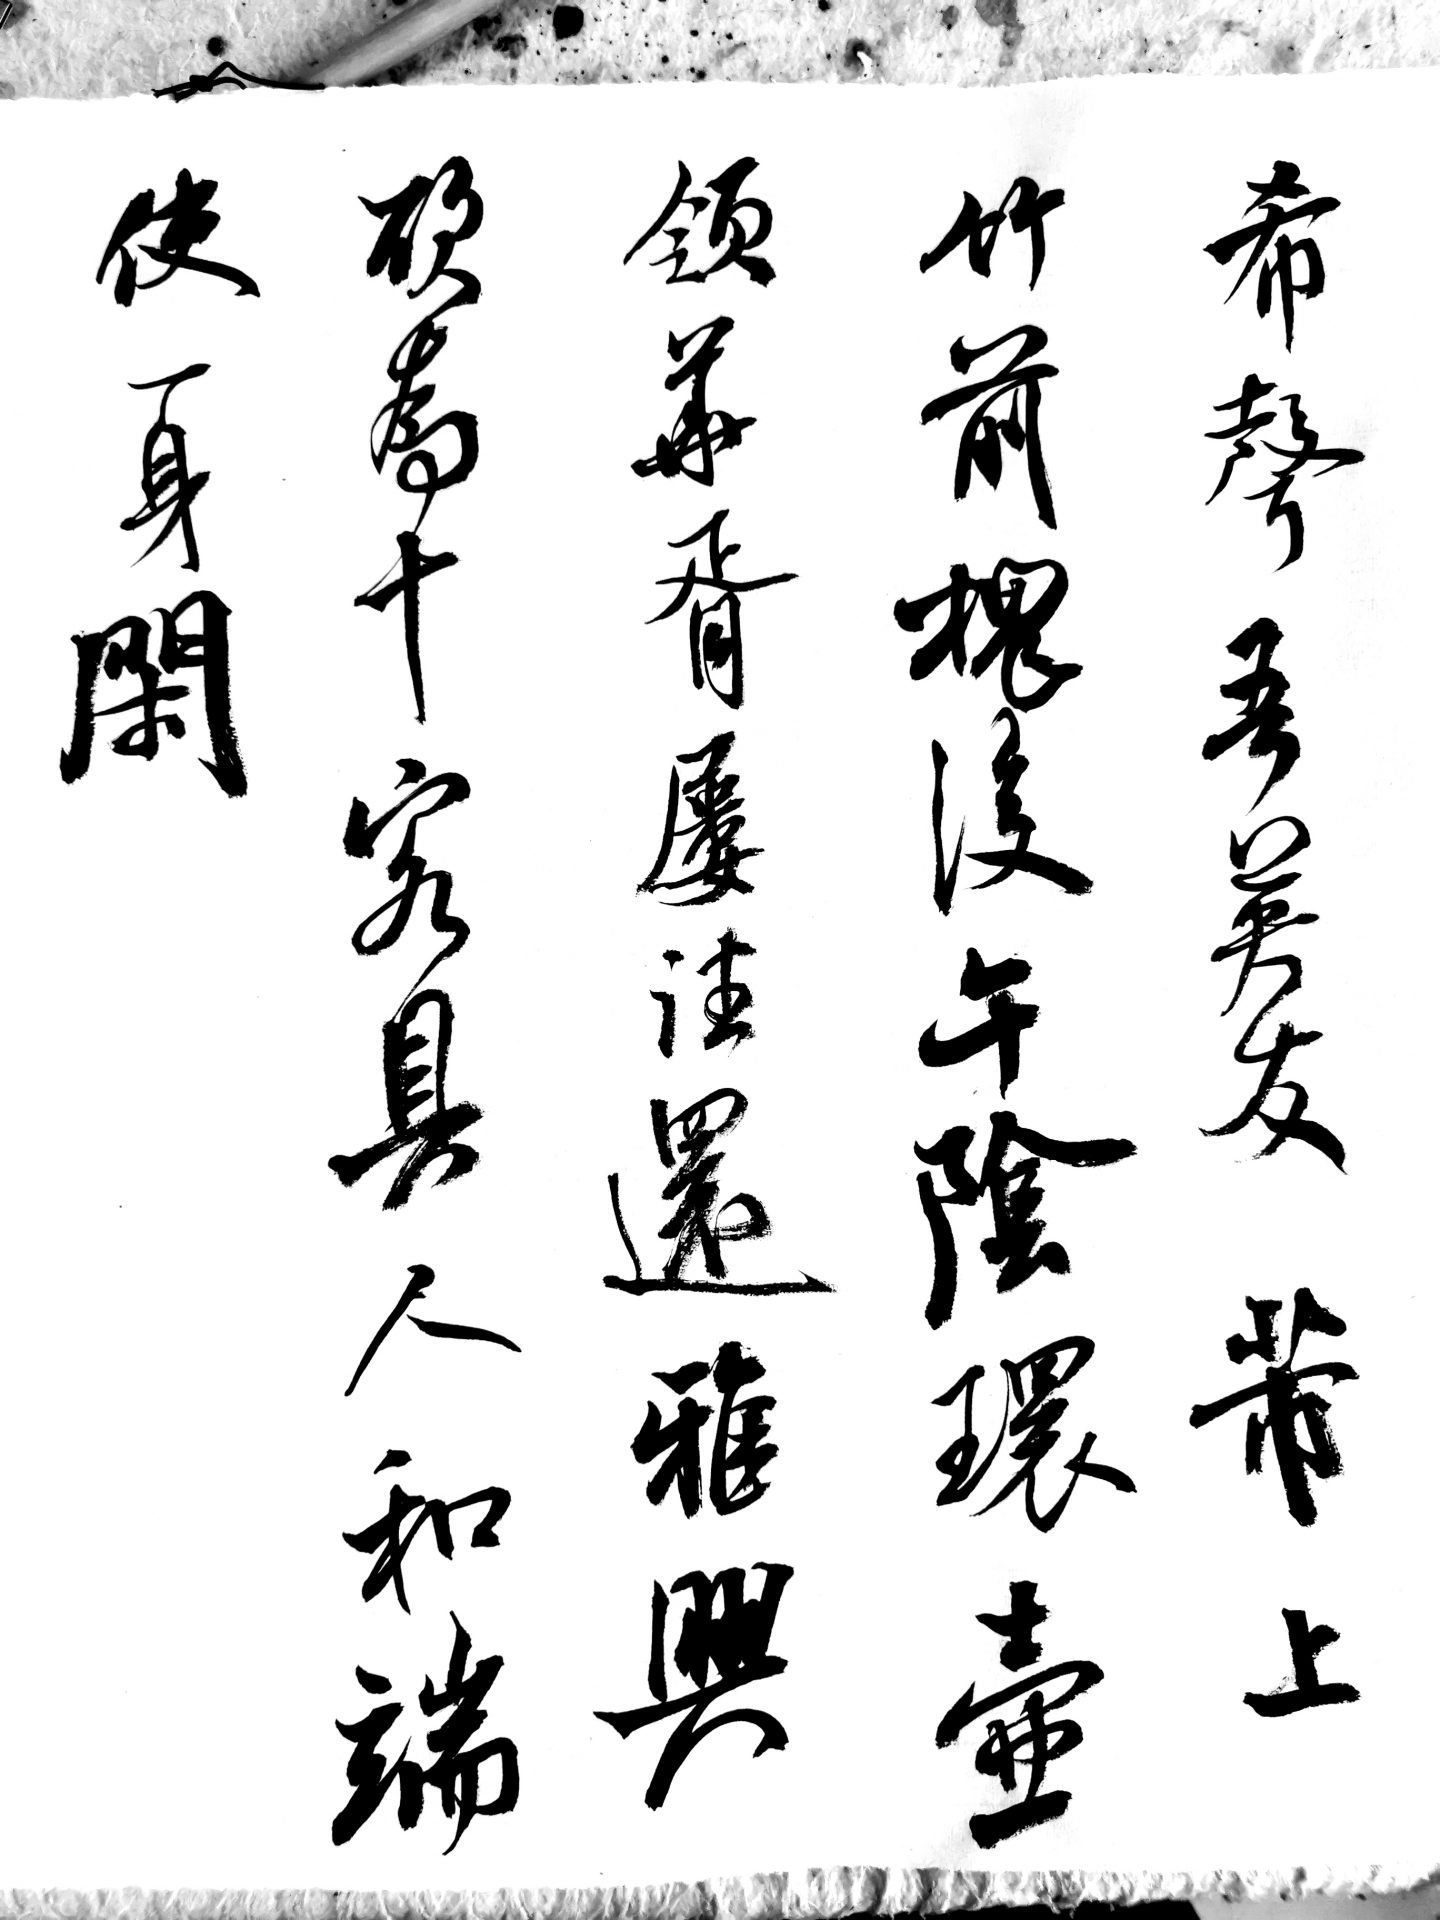 希聲吾英友 芾上
竹前槐後午陰環壺
領華胥屢往還雅興
欲為十客具人和端
使一身閑